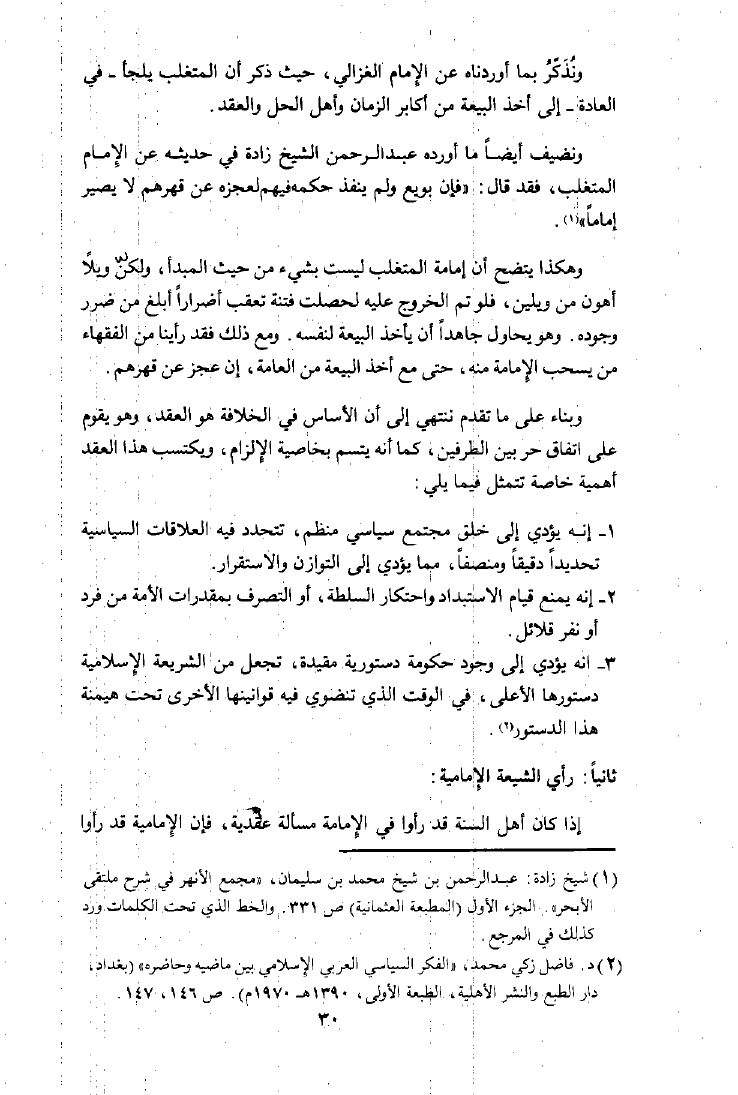 ونُذَكِّرُ بما أوردناه عن الإمام الغزالي، حيث ذكر أن المتغلب يلجأ ـ في
العادة ـ إلى أخذ البيعة من أكابر الزمان وأهل الحل والعقد.
ونضيف أيضاً ما أورده عبدالرحمن الشيخ زادة في حديثه عن الإمام
المتغلب، فقد قال: «فإن بويع ولم ينفذ حكمه فيهم لعجزه عن قهرهم لا يصير
إماماً»(١).
وهكذا يتضح أن إمامة المتغلب ليست بشيء من حيث المبدأ، ولكنّ ويلاً
أهون من ويلين، فلو تم الخروج عليه لحصلت فتنة تعقب أضراراً أبلغ من ضرر
وجوده. وهو يحاول جاهداً أن يأخذ البيعة لنفسه. ومع ذلك فقد رأينا من الفقهاء
من يسحب الإمامة منه، حتى مع أخذ البيعة من العامة، إن عجز عن قهرهم.
وبناء على ما تقدم ننتهي إلى أن الأساس في الخلافة هو العقد، وهو يقوم
على اتفاق حر بين الطرفين، كما أنه يتسم بخاصية الإلزام، ويكتسب هذا العقد
أهمية خاصة تتمثل فيما يلي:
١ـ إنه يؤدي إلى خلق مجتمع سياسي منظم، تتحدد فيه العلاقات السياسية
تحديداً دقيقاً ومنصفاً، مما يؤدي إلى التوازن والاستقرار.
٢ـ إنه يمنع قيام الاستبداد واحتكار السلطة، أو التصرف بمقدرات الأمة من فرد
أو نفر قلائل.
٣ـ انه يؤدي إلى وجود حكومة دستورية مقيدة، تجعل من الشريعة الإسلامية
دستورها الأعلى، في الوقت الذي تنضوي فيه قوانينها الأخرى تحت هيمنة
هذا الدستور(٢).
ثانياً: رأي الشيعة الإمامية:
إذا كان أهل السنة قد رأوا في الإمامة مسألة عقدية، فإن الإمامية قد رأوا
(١) شيخ زادة: عبدالرحمن بن شيخ محمد بن سليمان، «مجمع الأنهر في شرح ملتقى
الأبحر». الجزء الأول (المطبعة العثمانية) ص ٣٣١. والخط الذي تحت الكلمات ورد
كذلك في المرجع.
(٢) د. فاضل زكي محمد، «الفكر السياسي العربي الإسلامي بين ماضيه وحاضره» (بغداد،
دار الطبع والنشر الأهلية، الطبعة الأولى، ١٣٩٠هـ ١٩٧٠م). ص ١٤٦، ١٤٧.
٣٠